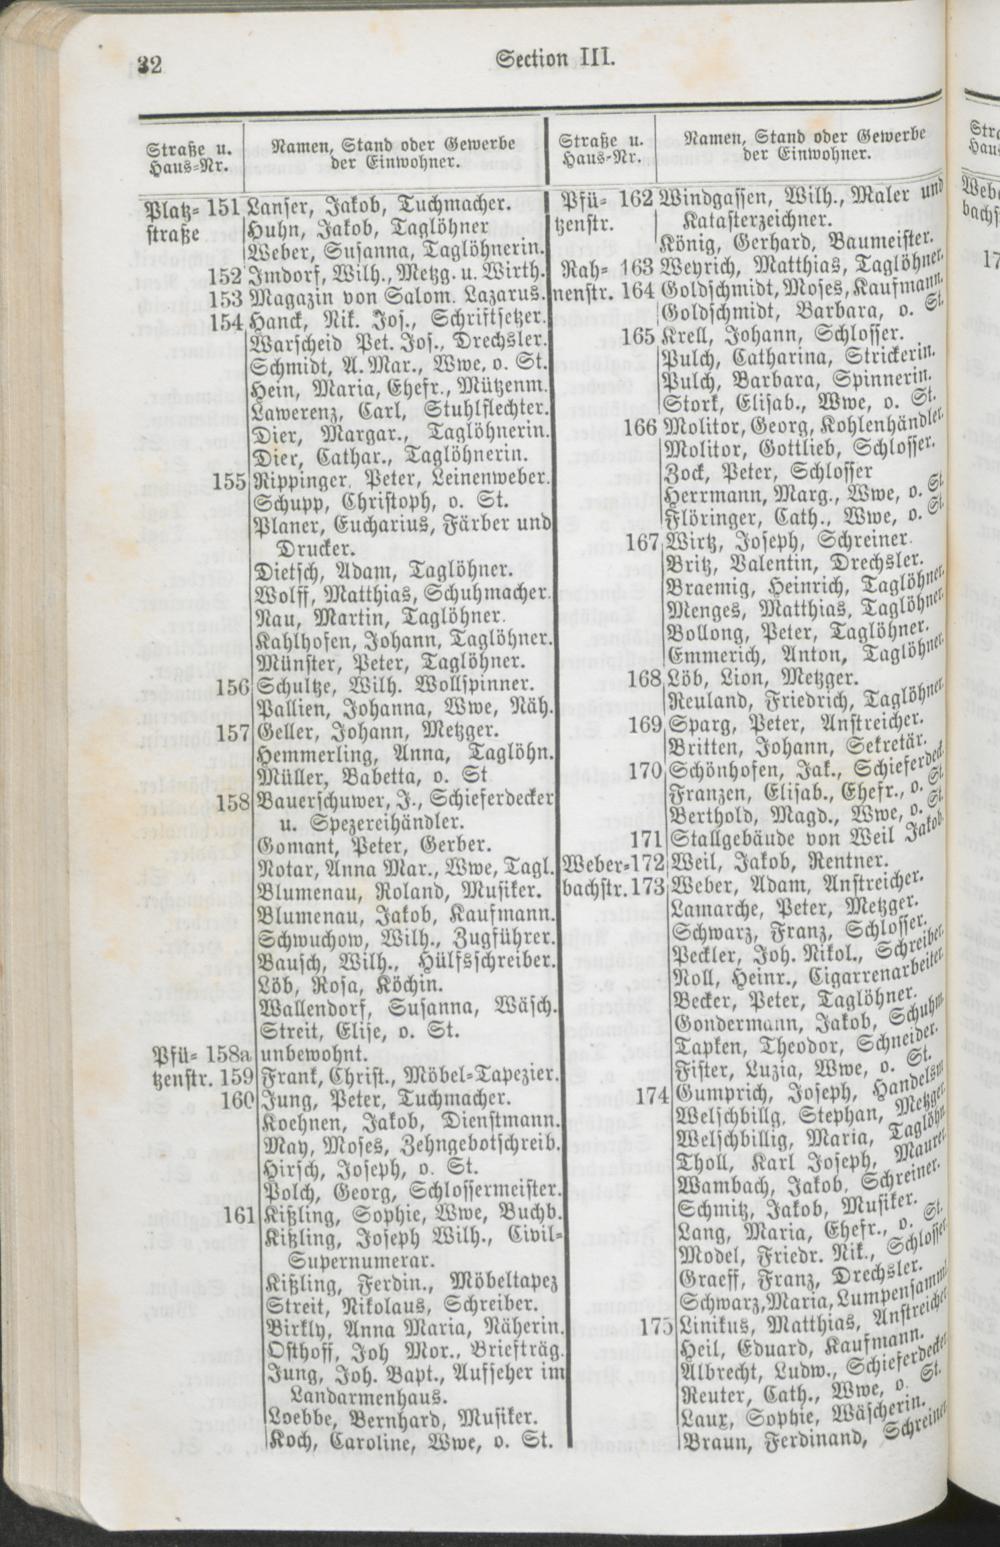 32
Section III.
Straße u. Haus=Nr.
Namen, Stand oder Gewerbe der Einwohner.
Platz= 151 Lanser, Jakob, Tuchmacher.
straße Huhn, Jakob, Taglöhner
Weber, Susanna, Taglöhnerin.
152 Imdorf, Wilh., Metzg. u. Wirth.
153 Magazin von Salom. Lazarus.
154 Hanck, Nik. Jos., Schriftsetzer.
Warscheid Pet. Jos., Drechsler.
Schmidt, A. Mar., Wwe, o. St.
Hein, Maria, Ehefr., Mützenm.
Lawerenz, Carl, Stuhlflechter.
Dier, Margar., Taglöhnerin.
Dier, Cathar., Taglöhnerin.
155 Rippinger, Peter, Leinenweber.
Schupp, Christoph, o. St.
Planer, Eucharius, Färber und
Drucker.
Dietsch, Adam, Taglöhner.
Wolff, Matthias, Schuhmacher.
Nau, Martin, Taglöhner.
Kahlhofen, Johann, Taglöhner.
Münster, Peter, Taglöhner.
156 Schultze, Wilh. Wollspinner.
Pallien, Johanna, Wwe, Näh.
157 Geller, Johann, Metzger.
Hemmerling, Anna, Taglöhn.
Müller, Babetta, o. St
158 Bauerschuwer, J., Schieferdecker
u. Spezereihändler.
Gomant, Peter, Gerber.
Notar, Anna Mar., Wwe, Tagl.
Blumenau, Roland, Musiker.
Blumenau, Jakob, Kaufmann.
Schwuchow, Wilh., Zugführer.
Bausch, Wilh., Hülfsschreiber.
Löb, Rosa, Köchin.
Wallendorf, Susanna, Wäsch.
Streit, Elise, o. St.
Pfü= 158a unbewohnt.
tzenstr. 159 Frank, Christ., Möbel=Tapezier.
160 Jung, Peter, Tuchmacher.
Koehnen, Jakob, Dienstmann.
May, Moses, Zehngebotschreib.
Hirsch, Joseph, o. St.
Polch, Georg, Schlossermeister.
161 Kißling, Sophie, Wwe, Buchb.
Kißling, Joseph Wilh., Civil=
Supernumerar.
Kißling, Ferdin., Möbeltapez
Streit, Nikolaus, Schreiber.
Birkly, Anna Maria, Näherin.
Osthoff, Joh Mor., Briefträg.
Jung, Joh. Bapt., Aufseher im
Landarmenhaus.
Loebbe, Bernhard, Musiker.
Koch, Caroline, Wwe, o. St.
Straße u. Haus=Nr.
Namen, Stand oder Gewerbe der Einwohner.
Pfü= 162 Windgassen, Wilh., Maler und
tzenstr. Katasterzeichner.
König, Gerhard, Baumeister.
Rah= 163 Weyrich, Matthias, Taglöhner.
nenstr. 164 Goldschmidt, Moses, Kaufmann.
Goldschmidt, Barbara, o. St.
165 Krell, Johann, Schlosser.
Pulch, Catharina, Strickerin.
Pulch, Barbara, Spinnerin.
Stork, Elisab., Wwe, o. St.
166 Molitor, Georg, Kohlenhändler.
Molitor, Gottlieb, Schlosser.
Zock, Peter, Schlosser
Herrmann, Marg., Wwe, o. St.
Flöringer, Cath., Wwe, o. St.
167 Wirtz, Joseph, Schreiner.
Britz, Valentin, Drechsler.
Braemig, Heinrich, Taglöhner.
Menges, Matthias, Taglöhner.
Bollong, Peter, Taglöhner.
Emmerich, Anton, Taglöhner.
168 Löb, Lion, Metzger.
Reuland, Friedrich, Taglöhner.
169 Sparg, Peter, Anstreicher.
Britten, Johann, Sekretär.
170 Schönhofen, Jak., Schieferdeck.
Franzen, Elisab., Ehefr., o. St.
Berthold, Magd., Wwe, o. St.
171 Stallgebäude von Weil Jakob.
Weber= 172 Weil, Jakob, Rentner.
bachstr. 173 Weber, Adam, Anstreicher.
Lamarche, Peter, Metzger.
Schwarz, Franz, Schlosser.
Peckler, Joh. Nikol., Schreiber.
Noll, Heinr., Cigarrenarbeiter.
Becker, Peter, Taglöhner.
Gondermann, Jakob, Schuhm.
Tapken, Theodor, Schneider.
Fister, Luzia, Wwe, o. St.
174 Gumprich, Joseph, Handelsm
Welschbillg, Stephan, Metzger.
Welschbillig, Maria, Taglöhn.
Tholl, Karl Joseph, Maurer.
Wambach, Jakob, Schreiner.
Schmitz, Jakob, Musiker.
Lang, Maria, Ehefr., o. St.
Model, Friedr. Nik., Schlosser
Graeff, Franz, Drechsler.
Schwarz, Maria, Lumpensamml
175 Linikus, Matthias, Anstreicher
Heil, Eduard, Kaufmann.
Albrecht, Ludw., Schieferdecker
Reuter, Cath., Wwe, o. St.
Laux, Sophie, Wäscherin.
Braun, Ferdinand, Schreiner
Stra
Haus
Webe
bachst
17